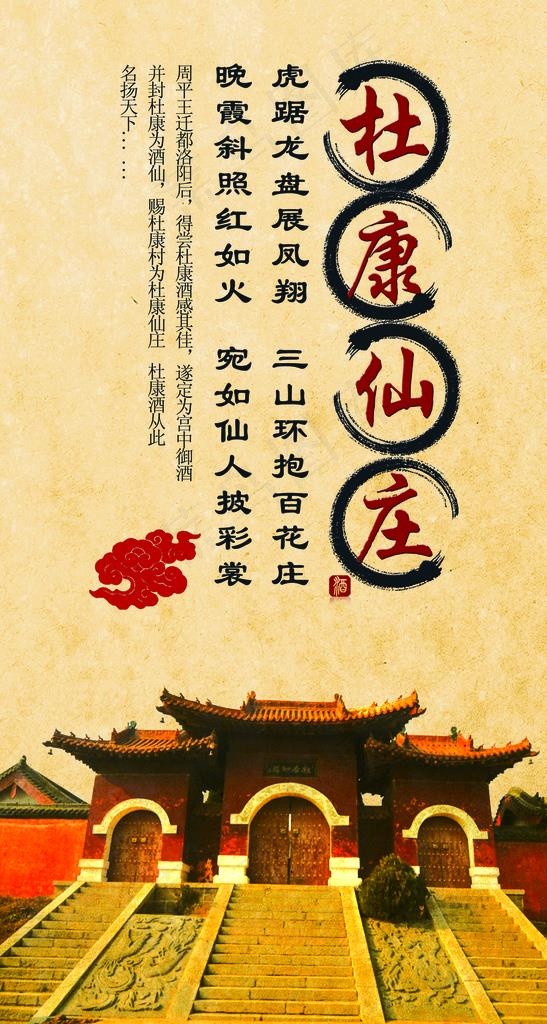 杜康仙庄
酒
虎踞龙盘展凤翔 三山环抱百花庄
晚霞斜照红如火 宛如仙人披彩裳
周平王迁都洛阳后，得尝杜康酒感其佳，遂定为宫中御酒
并封杜康为酒仙，赐杜康村为杜康仙庄 杜康酒从此
名扬天下……